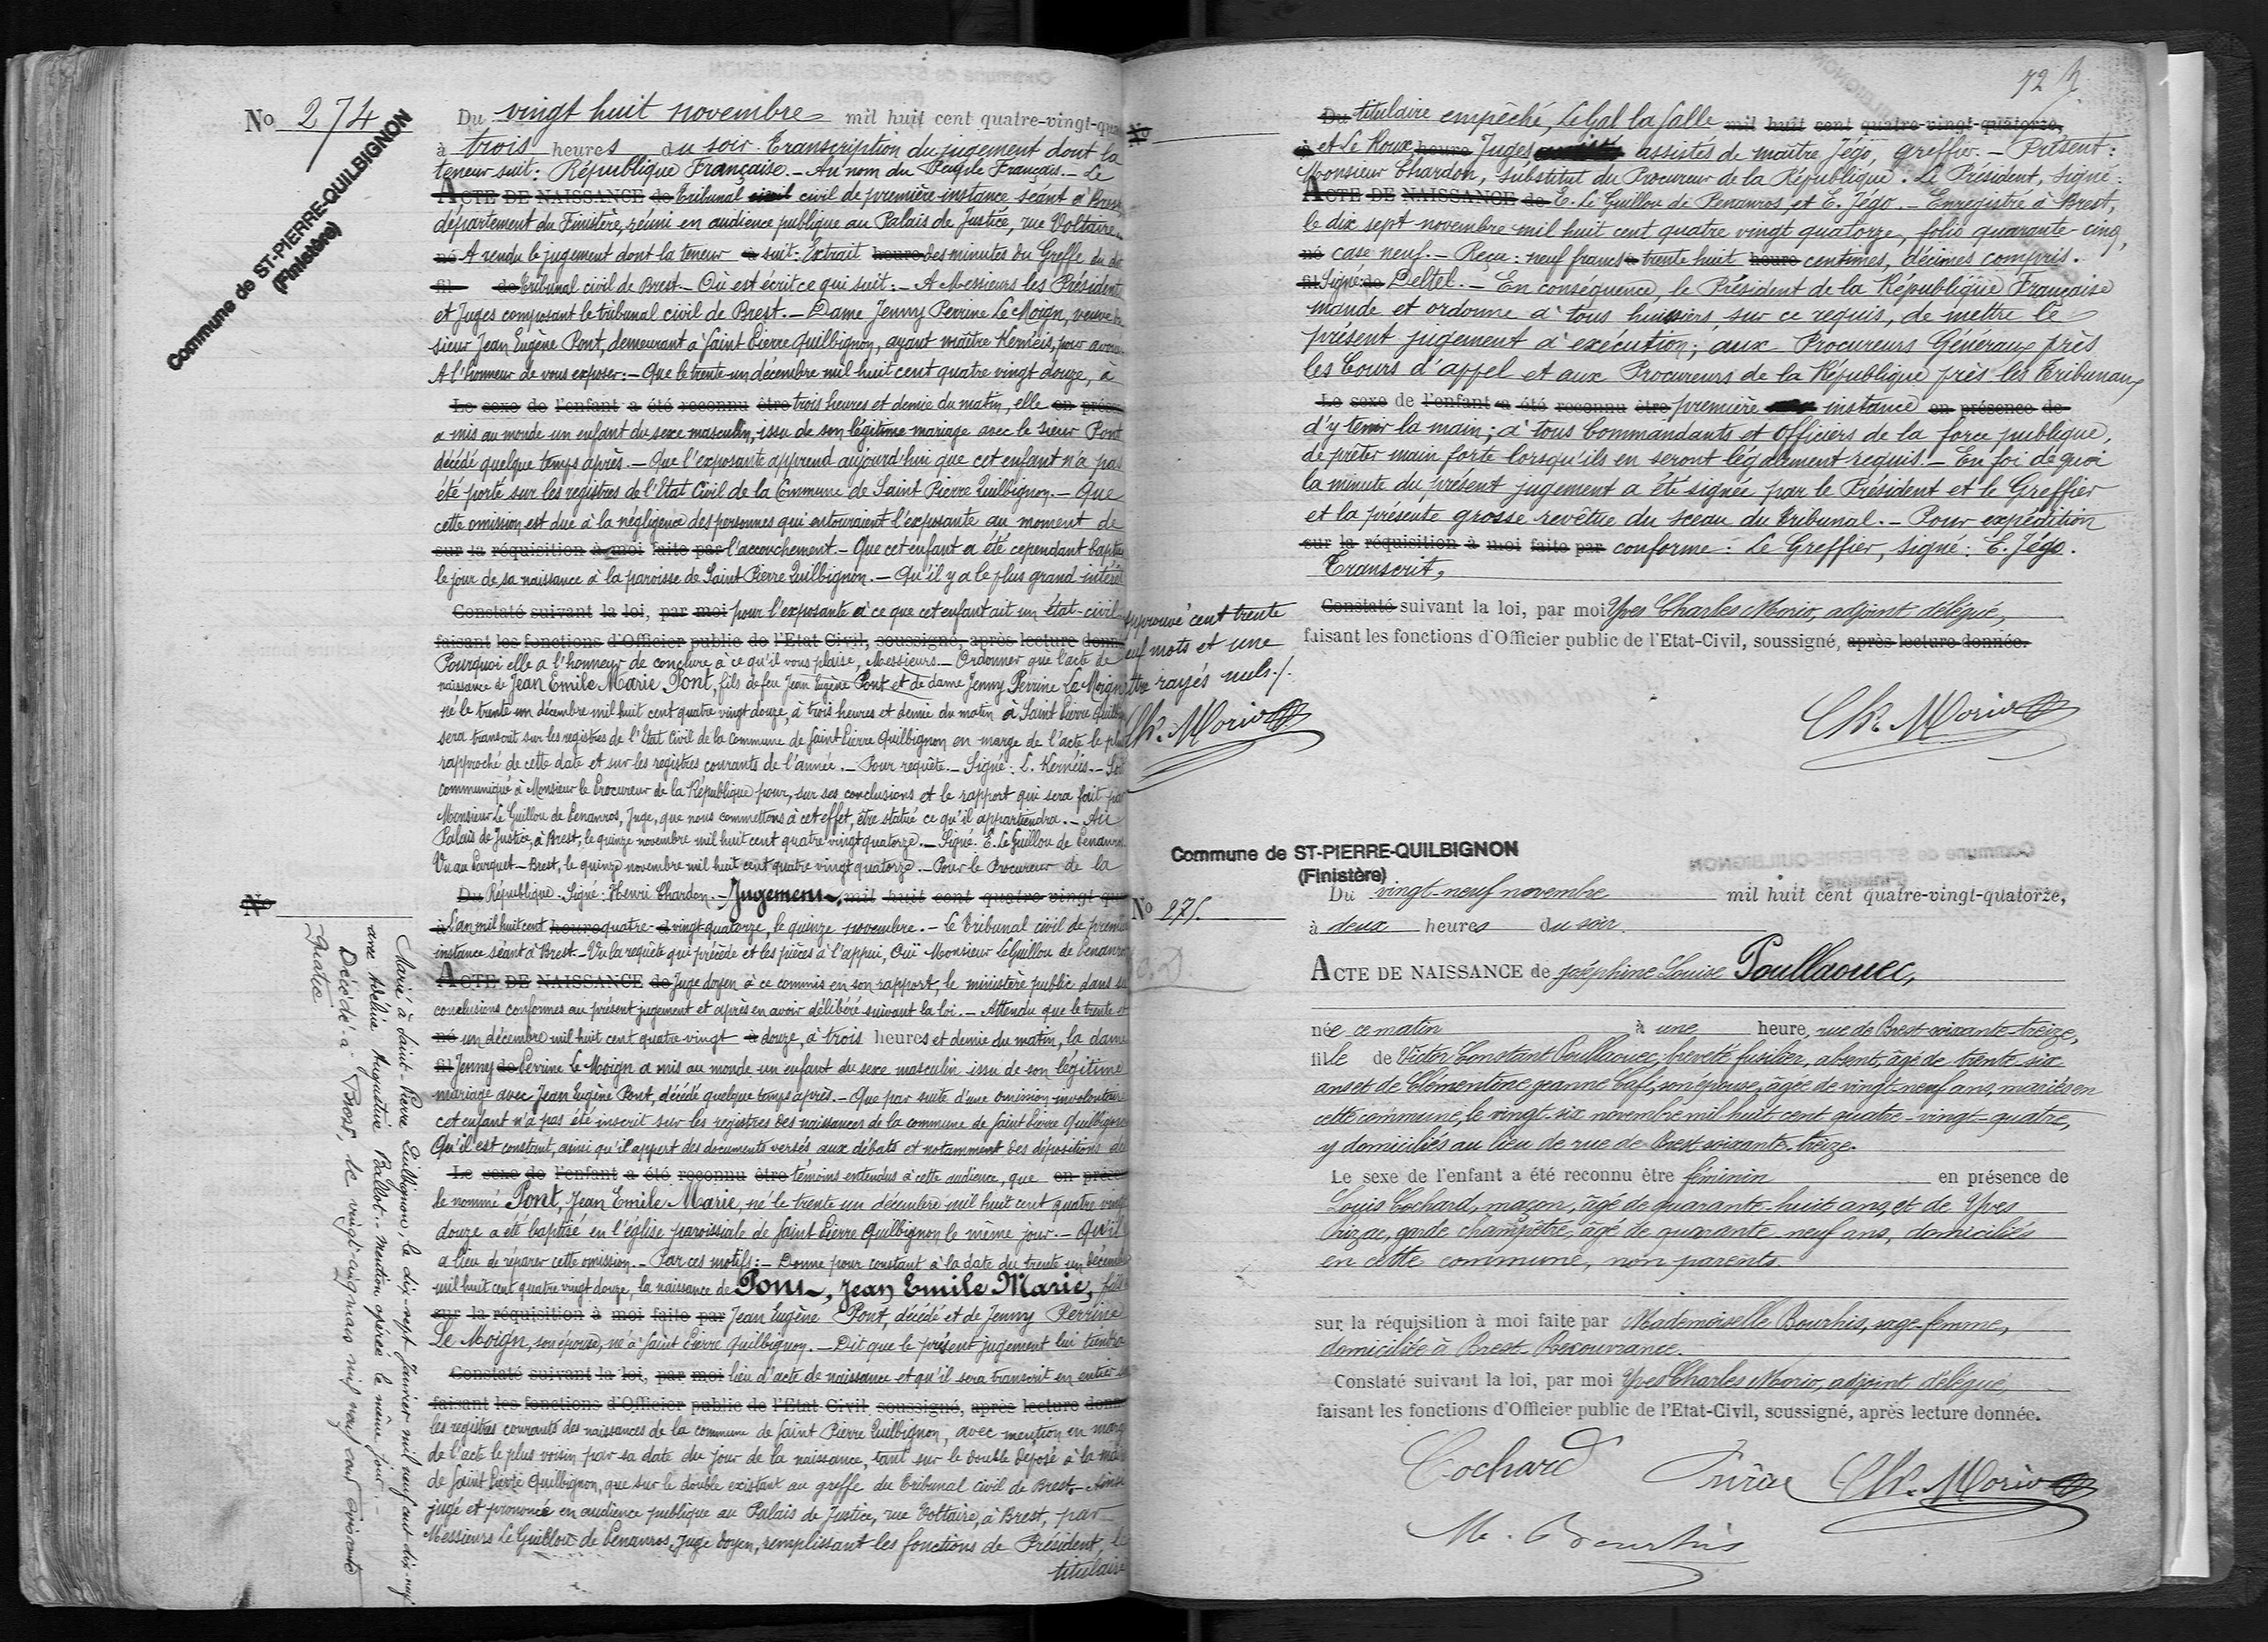 No 274
Commune de ST-PIERRE-QUILBIGNON
(Finistère)
Du vingt huit novembre mil huit cent quatre-vingt-qua
à trois heures du soir. Transcription du jugement dont la
teneur suit: République Française. — Au nom du Peuple Français. — Le
ACTE DE NAISSANCE de Tribunal civil civil de première instance séant à Brest,
département du Finistère, réuni en audience publique au Palais de Justice, rue Voltaire.
né A rendu le jugement dont la teneur à suit: Extrait heure des minutes du Greffe du dit
fil de Tribunal civil de Brest. — Où est écrit ce qui suit: — A Messieurs les Président
et Juges composant le tribunal civil de Brest. — Dame Jenny Perrine Le Moign, veuve de
sieur Jean Eugène Pont, demeurant à Saint Pierre Quilbignon, ayant maître Kernéis, pour avoué
A l'honneur de vous exposer: — Que le trente-un décembre mil huit cent quatre vingt douze, à
Le sexe de l'enfant a été reconnu être trois heures et demie du matin, elle en prése
a mis au monde un enfant du sexe masculin, issu de son légitime mariage avec le sieur Pont
décédé quelque temps après. — Que l'exposante apprend aujourd'hui que cet enfant n'a pas
été porté sur les registres de l'Etat Civil de la Commune de Saint Pierre Quilbignon. — Que
cette omission est due à la négligence des personnes qui entouraient l'exposante au moment de
sur la réquisition à moi faite par l'accouchement. — Que cet enfant a été cependant baptisé
le jour de sa naissance à la paroisse de Saint Pierre Quilbignon. — Qu'il y a le plus grand intérêt
Constaté suivant la loi, par moi pour l'exposante à ce que cet enfant ait un état-civil
faisant les fonctions d'Officier public de l'Etat Civil, soussigné, après lecture donné
Pourquoi elle a l'honneur de conclure à ce qu'il vous plaise, Messieurs. — Ordonner que l'acte de
naissance de Jean Emile Marie Pont, fils de feu Jean Eugène Pont et de dame Jenny Perrine Le Moign
né le trente un décembre mil huit cent quatre vingt douze, à trois heures et demie du matin à Saint Pierre Quilbi
sera transcrit sur les registres de l'Etat Civil de la Commune de Saint Pierre Quilbignon en marge de l'acte le plus
rapproché de cette date et sur les registres courants de l'année. — Pour requête. — Signé: L. Kernéis. — Soit
communiqué à Monsieur le Procureur de la République pour, sur ses conclusions et le rapport qui sera fait par
Monsieur Le Guillou de Penanros, Juge, que nous commettons à cet effet, être statué ce qu'il appartiendra. — Au
Palais de Justice, à Brest, le quinze novembre mil huit cent quatre vingt quatorze. — Signé: E. Le Guillou de Penanros.
Vu au Parquet — Brest, le quinze novembre mil huit cent quatre vingt quatorze. — Pour le Procureur de la
No
Du République. Signé: Henri Chardon. — Jugement, mil huit cent quatre vingt qua
à L'an mil huit cent heure quatre-d vingt quatorze, le quinze novembre. — Le Tribunal civil de première
instance séant à Brest. — Vu la requête qui précède et les pièces à l'appui, Ouï Monsieur Le Guillou de Penanros
ACTE DE NAISSANCE de Juge doyen à ce commis en son rapport, le ministère public dans ses
conclusions conformes au présent jugement et après en avoir délibéré suivant la loi. — Attendu que le trente et
né un décembre mil huit cent quatre vingt à douze, à trois heures et demie du matin, la dame
fil Jenny de Perrine Le Moign a mis au monde un enfant du sexe masculin issu de son légitime
mariage avec Jean Eugène Pont, décédé quelque temps après. — Que par suite d'une omission involontaire
cet enfant n'a pas été inscrit sur les registres des naissances de la commune de Saint Pierre Quilbignon
Qu'il est constant, ainsi qu'il appert des documents versés aux débats et notamment des dépositions de
Le sexe de l'enfant a été reconnu être témoins entendus à cette audience, que en prése
le nommé Pont, Jean Emile Marie, né le trente un décembre mil huit cent quatre vingt
douze a été baptisé en l'église paroissiale de Saint Pierre Quilbignon le même jour. — Qu'il
a lieu de réparer cette omission. — Par ces motifs: — Donne pour constant à la date du trente un décembre
mil huit cent quatre vingt douze, la naissance de Pont, Jean Emile Marie, fils
sur la réquisition à moi faite par Jean Eugène Pont, décédé et de Jenny Perrine
Le Moign, son épouse, né à Saint Pierre Quilbignon. — Dit que le présent jugement lui tiendra
Constaté suivant la loi, par moi lieu d'acte de naissance et qu'il sera transcrit en entier sur
faisant les fonctions d'Officier public de l'Etat Civil soussigné, après lecture donn
les registres courants des naissances de la commune de Saint Pierre Quilbignon, avec mention en marge
de l'acte le plus voisin par sa date du jour de la naissance, tant sur le double déposé à la mairie
de Saint Pierre Quilbignon, que sur le double existant au greffe du Tribunal civil de Brest. — Ainsi
jugé et prononcé en audience publique au Palais de Justice, rue Voltaire, à Brest, par
Messieurs Le Guillou de Penanros, Juge doyen, remplissant les fonctions de Président, le
titulaire
Marié à Saint-Pierre Quilbignon, le dix-sept Janvier mil neuf cent dix-neuf
avec Hélène Augustine Ballot. — Mention opérée le même jour. —
Décédé à Brest, le vingt-cinq mars mil neuf cent soixante
Quatre
72
Du titulaire empêché, Le Gal la Salle mil huit cent quatre-vingt-quatorze,
à et Le Roux heure Juges assistés de maître Jégo, greffier. — Présent:
Monsieur Chardon, substitut du Procureur de la République. Le Président, signé:
ACTE DE NAISSANCE de E. Le Guillou de Penanros, et E. Jégo. — Enregistré à Brest,
le dix sept novembre mil huit cent quatre vingt quatorze, folio quarante-cinq,
né case neuf. — Reçu: neuf francs à trente huit heure centimes, décimes compris.
fil Signé: de Deltel. — En conséquence, le Président de la République Française
mande et ordonne à tous huissiers, sur ce requis, de mettre le
présent jugement à exécution; aux Procureurs Généraux près
les Cours d'appel et aux Procureurs de la République près les Tribunaux
Le sexe de l'enfant a été reconnu être première instance en présence de
d'y tenir la main; à tous Commandants et Officiers de la force publique,
de prêter main forte lorsqu'ils en seront légalement requis. — En foi de quoi
la minute du présent jugement a été signée par le Président et le Greffier
et la présente grosse revêtue du sceau du Tribunal. — Pour expédition
sur la réquisition à moi faite par conforme: Le Greffier, signé: E. Jégo.
Transcrit,
Constaté suivant la loi, par moi Yves Charles Morio, adjoint délégué,
faisant les fonctions d'Officier public de l'Etat-Civil, soussigné, après lecture donnée.
Approuvé cent trente
neuf mots et une
lettre rayés nuls./.
Ch. Morio
Ch. Morio
Commune de ST-PIERRE-QUILBIGNON
(Finistère)
No 275
Du vingt-neuf novembre mil huit cent quatre-vingt-quatorze,
à deux heures du soir.
ACTE DE NAISSANCE de Joséphine Louise Poullaouec,
née ce matin à une heure, rue de Brest soixante-treize,
fille de Victor Constant Poullaouec, breveté fusilier, absent, âgé de trente-six
ans et de Clémentine Jeanne Cafi, son épouse, âgée de vingt-neuf ans, mariés en
cette commune, le vingt-six novembre mil huit cent quatre-vingt-quatre,
y domiciliés au lieu de rue de Brest soixante-treize.
Le sexe de l'enfant a été reconnu être féminin en présence de
Louis Cochard, maçon, âgé de quarante-huit ans et de Yves
Prizac, garde champêtre, âgé de quarante neuf ans, domiciliés
en cette commune, non parents.
sur la réquisition à moi faite par Mademoiselle Bourhis, sage-femme,
domiciliée à Brest Recouvrance.
Constaté suivant la loi, par moi Yves Charles Morio, adjoint délégué,
faisant les fonctions d'Officier public de l'Etat-Civil, soussigné, après lecture donnée.
Cochard Ch. Morio
M. Bourhis